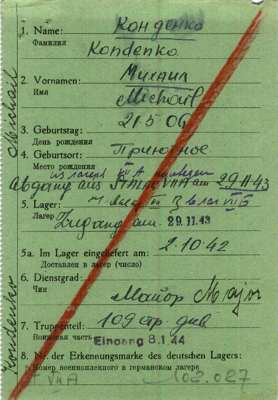 1. Name: Конденко
Фамилия
Kondenko
2. Vornamen: Михаил
Имя
Michail
3. Geburtstag: 21.5.06
День рождения
4. Geburtsort: Приютное
Место рождения
из лагеря VII A
Abgang aus Stalag VII A am 29.11.43
5. Lager:
Лагер
Zugang am. 29.11.43
5a. Im Lager eingeliefert am:
Доставлен в лагер (число)
2.10.42
6. Dienstgrad:
Чин
Майор Major
7. Truppenteil: 109 стр. див
Воинская часть
Eingang 8.1.44
8. Nr. der Erkennungsmarke des deutschen Lagers:
№ военнопленного в германском лагере
VII A 102.027
Kondenko Michail